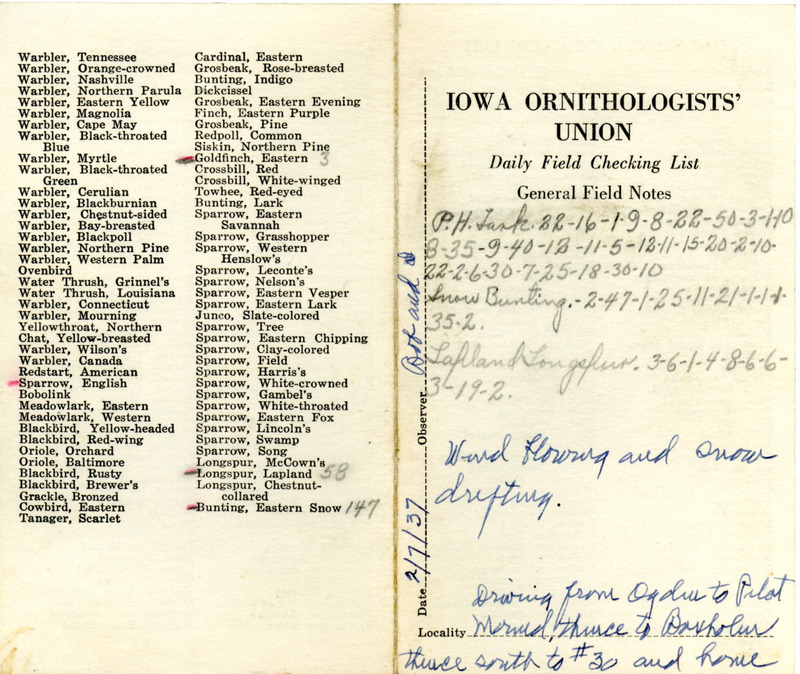 Warbler, Tennessee
Warbler, Orange-crowned
Warbler, Nashville
Warbler, Northern Parula
Warbler, Eastern Yellow
Warbler, Magnolia
Warbler, Cape May
Warbler, Black-throated
Blue
Warbler, Myrtle
Warbler, Black-throated
Green
Warbler, Cerulian
Warbler, Blackburnian
Warbler, Chestnut-sided
Warbler, Bay-breasted
Warbler, Blackpoll
Warbler, Northern Pine
Warbler, Western Palm
Ovenbird
Water Thrush, Grinnel's
Water Thrush, Louisiana
Warbler, Connecticut
Warbler, Mourning
Yellowthroat, Northern
Chat, Yellow-breasted
Warbler, Wilson's
Warbler, Canada
Redstart, American
Sparrow, English
Bobolink
Meadowlark, Eastern
Meadowlark, Western
Blackbird, Yellow-headed
Blackbird, Red-wing
Oriole, Orchard
Oriole, Baltimore
Blackbird, Rusty
Blackbird, Brewer's
Grackle, Bronzed
Cowbird, Eastern
Tanager, Scarlet
Cardinal, Eastern
Grosbeak, Rose-breasted
Bunting, Indigo
Dickcissel
Grosbeak, Eastern Evening
Finch, Eastern Purple
Grosbeak, Pine
Redpoll, Common
Siskin, Northern Pine
Goldfinch, Eastern 3
Crossbill, Red
Crossbill, White-winged
Towhee, Red-eyed
Bunting, Lark
Sparrow, Eastern
Savannah
Sparrow, Grasshopper
Sparrow, Western
Henslow's
Sparrow, Leconte's
Sparrow, Nelson's
Sparrow, Eastern Vesper
Sparrow, Eastern Lark
Junco, Slate-colored
Sparrow, Tree
Sparrow, Eastern Chipping
Sparrow, Clay-colored
Sparrow, Field
Sparrow, Harris's
Sparrow, White-crowned
Sparrow, Gambel's
Sparrow, White-throated
Sparrow, Eastern Fox
Sparrow, Lincoln's
Sparrow, Swamp
Sparrow, Song
Longspur, McCown's
Longspur, Lapland 58
Longspur, Chestnut-
collared
Bunting, Eastern Snow 147
IOWA ORNITHOLOGISTS'
UNION
Daily Field Checking List
General Field Notes
P.H. Lark. 22-16-1-9-8-22-50-3-1-10
8-35-9-40-12-11-5-12-11-15-20-2-10-
22-2-6-30-7-25-18-30-10
Snow Bunting.-2-47-1-25-11-21-1-1-1-
35-2.
Lapland Longspur. 3-6-1-4-8-6-6-
3-19-2.
Wind blowing and snow
drifting.
Date 2/7/37 Observer Bob and
Driving from Ogden to Pilot
Locality Mound, thence to Boxholm
thence south to #30 and home